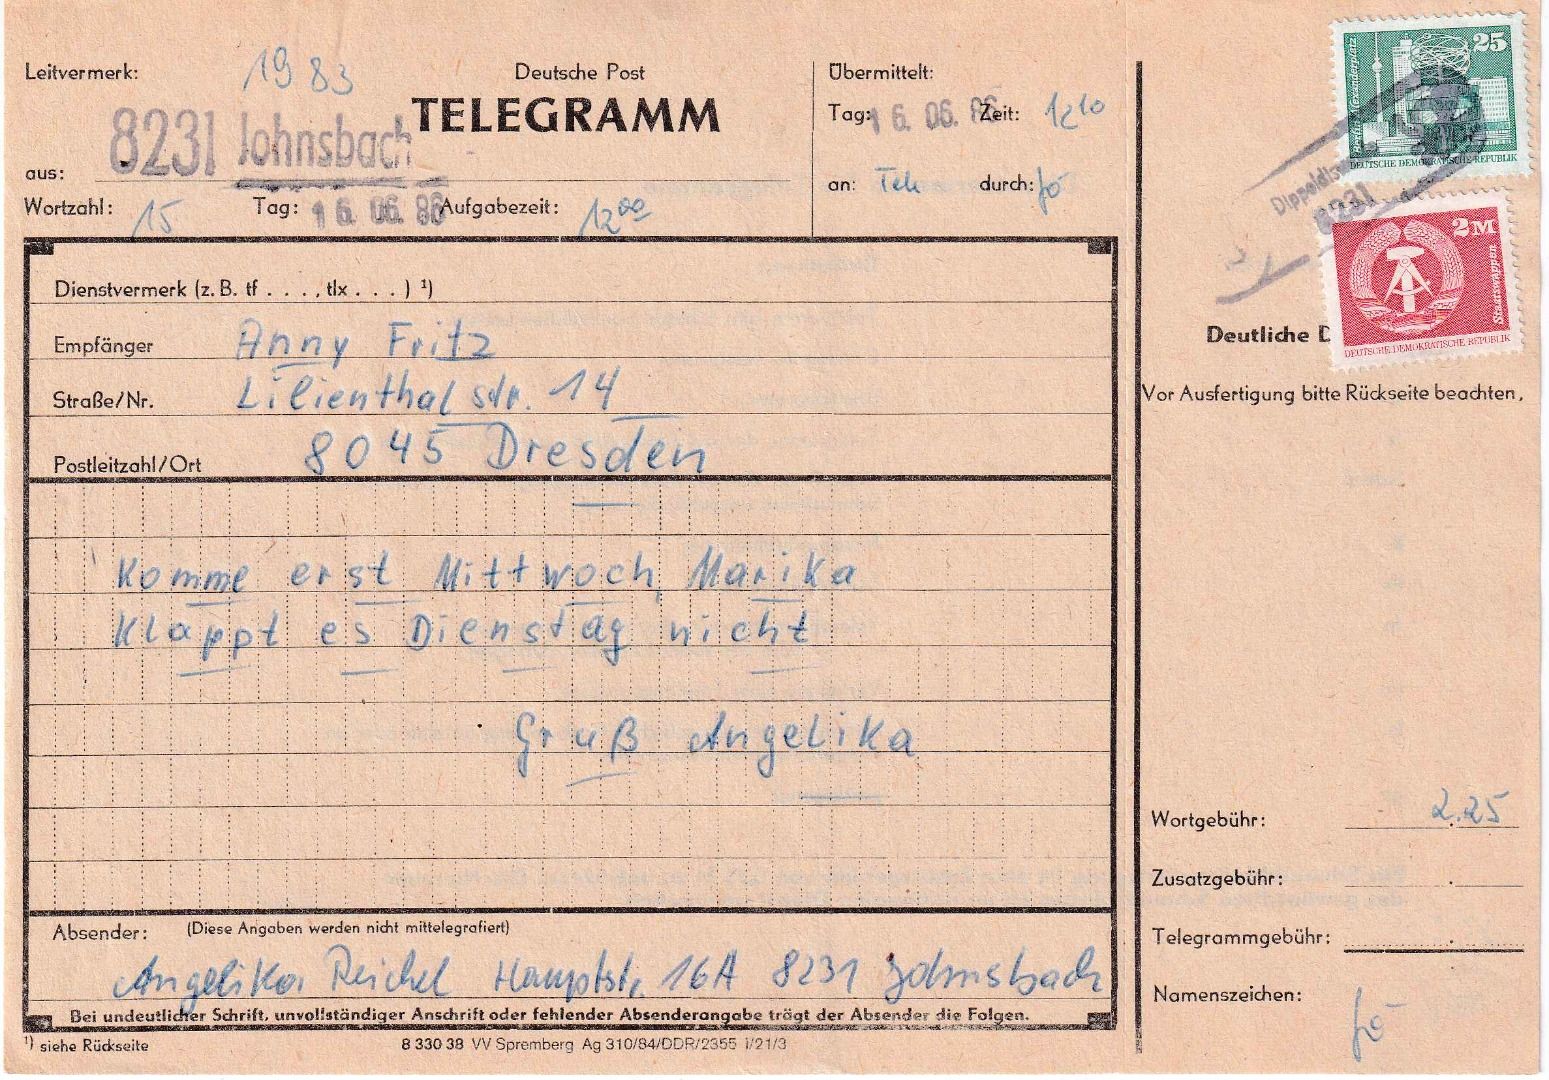 Leitvermerk: 1983
8231 Johnsbach
Deutsche Post
TELEGRAMM
aus:
Wortzahl: 15 Tag: 16. 06. 86 Aufgabezeit: 12⁰⁰
Übermittelt:
Tag: 16. 06. 86 Zeit: 12¹⁰
an: Tek durch: fö
Dienstvermerk (z. B. tf . . . , tlx . . . ) ¹)
Empfänger Anny Fritz
Straße/Nr. Lilienthalstr. 14
Postleitzahl/Ort 8045 Dresden
Komme erst Mittwoch, Marika
Klappt es Dienstag nicht
Gruß Angelika
Absender: (Diese Angaben werden nicht mittelegrafiert)
Angelika Reichel Hauptstr. 16A 8231 Johnsbach
Bei undeutlicher Schrift, unvollständiger Anschrift oder fehlender Absenderangabe trägt der Absender die Folgen.
¹) siehe Rückseite
8 330 38 VV Spremberg Ag 310/84/DDR/2355 I/21/3
25
Alexanderplatz
DEUTSCHE DEMOKRATISCHE REPUBLIK
8231
2 M
Staatswappen
DEUTSCHE DEMOKRATISCHE REPUBLIK
Deutliche D
Vor Ausfertigung bitte Rückseite beachten,
Wortgebühr: 2.25
Zusatzgebühr: .
Telegrammgebühr: .
Namenszeichen: fö